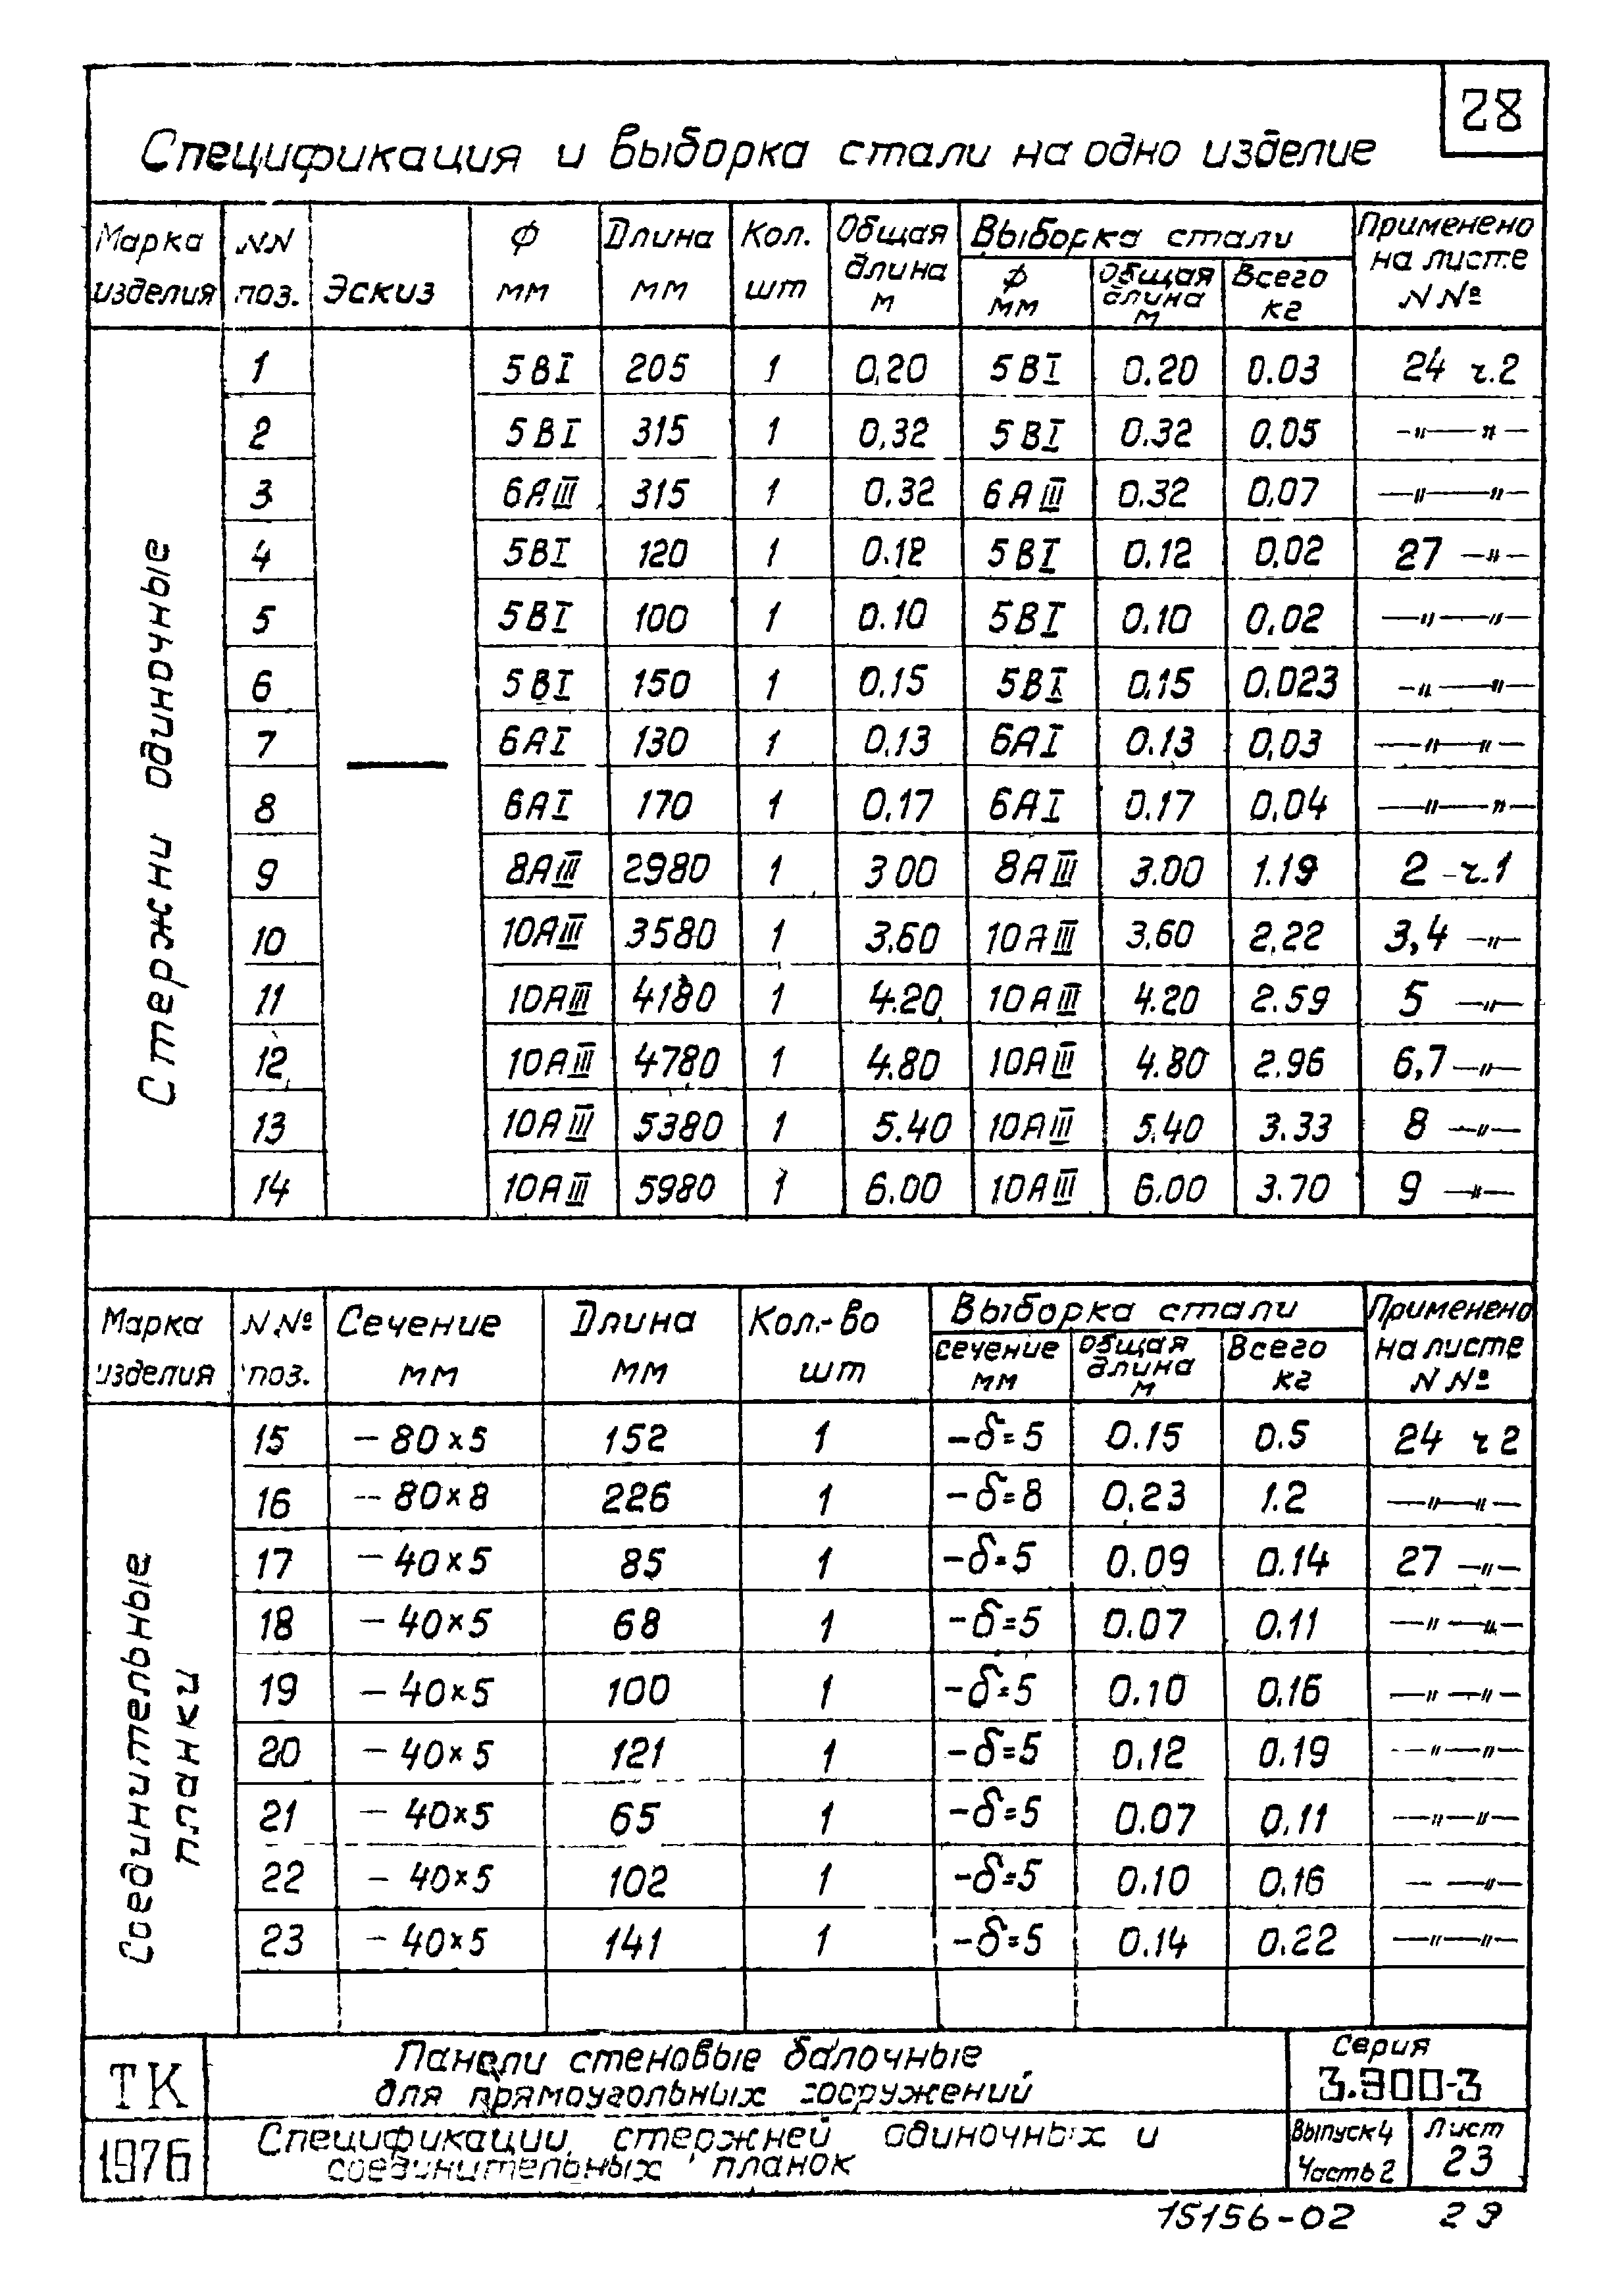 28
Спецификация и выборка стали на одно изделие
Марка изделия | NN поз. | Эскиз | Ф мм | Длина мм | Кол. шт | Общая длина м | Выборка стали | Применено на листе N№
Ф мм | Общая длина м | Всего кг
Стержни одиночные
1 | 5ВI | 205 | 1 | 0,20 | 5ВI | 0.20 | 0.03 | 24 ч.2
2 | 5ВI | 315 | 1 | 0,32 | 5ВI | 0.32 | 0,05 | -"-"-
3 | 6АIII | 315 | 1 | 0.32 | 6АIII | 0.32 | 0,07 | -"-"-
4 | 5ВI | 120 | 1 | 0.12 | 5ВI | 0.12 | 0,02 | 27 -"-
5 | 5ВI | 100 | 1 | 0.10 | 5ВI | 0.10 | 0.02 | -"-"-
6 | 5ВI | 150 | 1 | 0.15 | 5ВI | 0.15 | 0.023 | -"-"-
7 | 6АI | 130 | 1 | 0.13 | 6АI | 0.13 | 0,03 | -"-"-
8 | 6АI | 170 | 1 | 0.17 | 6АI | 0.17 | 0,04 | -"-"-
9 | 8АIII | 2980 | 1 | 3 00 | 8АIII | 3.00 | 1.19 | 2 -ч.1
10 | 10АIII | 3580 | 1 | 3.60 | 10АIII | 3.60 | 2.22 | 3,4 -"-
11 | 10АIII | 4180 | 1 | 4.20 | 10АIII | 4.20 | 2.59 | 5 -"-
12 | 10АIII | 4780 | 1 | 4.80 | 10АIII | 4.80 | 2.96 | 6,7 -"-
13 | 10АIII | 5380 | 1 | 5.40 | 10АIII | 5.40 | 3.33 | 8 -"-
14 | 10АIII | 5980 | 1 | 6.00 | 10АIII | 6.00 | 3.70 | 9 -"-
Марка изделия | N.№ поз. | Сечение мм | Длина мм | Кол.-во шт | Выборка стали | Применено на листе N№
сечение мм | общая длина м | Всего кг
Соединительные планки
15 | - 80×5 | 152 | 1 | -δ=5 | 0.15 | 0.5 | 24 ч 2
16 | - 80×8 | 226 | 1 | -δ=8 | 0.23 | 1.2 | -"-"-
17 | - 40×5 | 85 | 1 | -δ=5 | 0.09 | 0.14 | 27 -"-
18 | - 40×5 | 68 | 1 | -δ=5 | 0.07 | 0.11 | -"-"-
19 | - 40×5 | 100 | 1 | -δ=5 | 0.10 | 0.16 | -"-"-
20 | - 40×5 | 121 | 1 | -δ=5 | 0.12 | 0.19 | -"-"-
21 | - 40×5 | 65 | 1 | -δ=5 | 0.07 | 0.11 | -"-"-
22 | - 40×5 | 102 | 1 | -δ=5 | 0.10 | 0.16 | - -"-
23 | - 40×5 | 141 | 1 | -δ=5 | 0.14 | 0.22 | -"-"-
ТК
1976
Панели стеновые балочные
для прямоугольных сооружений
Спецификации стержней одиночных и
соединительных планок
Серия
3.900-3
Выпуск 4
Часть 2
Лист
23
15156-02 29